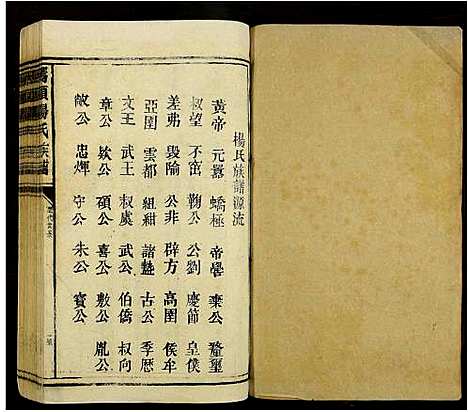 楊氏族譜源流
黃帝 元囂 蟜極 帝嚳 棄公 鶖璽
叔望 不窋 鞠公 公劉 慶節 皇僕
差弗 毀隃 公非 辟方 高圉 侯牟
亞圉 雲都 組紺 諸盩 古公 季歷
文王 武王 叔虞 武公 伯僑 叔向
章公 欵公 碩公 喜公 敷公 胤公
敞公 忠煇 守公 朱公 寳公
楊氏族譜